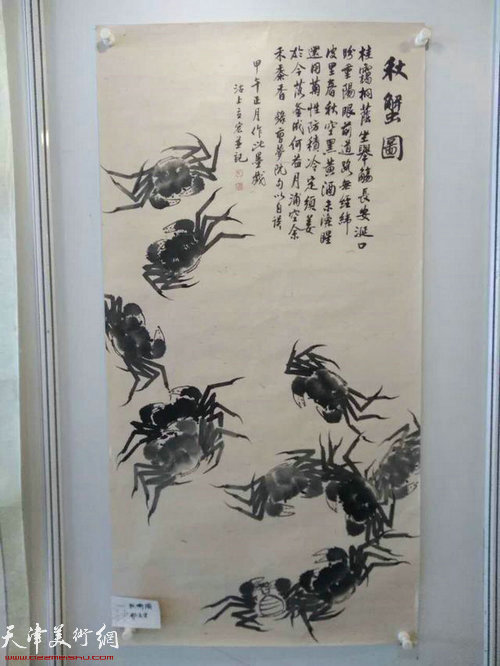 秋蟹圖
桂靄桐蔭坐舉觴長安涎口
盼重陽眼前道路無經緯
皮里春秋空黑黃酒未滌腥
還用菊性防積冷定須姜
於今落釜成何益月浦空余
禾黍香 錄曹夢阮句以自
甲午正月作此墨戲
沽上 宏並記
天津美術網